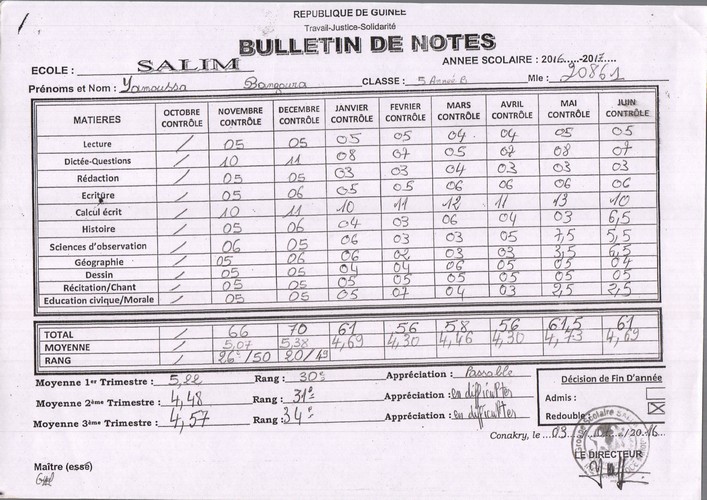 REPUBLIQUE DE GUINEE
Travail-Justice-Solidarité
BULLETIN DE NOTES
ECOLE : SALIM ANNEE SCOLAIRE : 2016-2017
Prénoms et Nom : Yamoussa Bangoura CLASSE : 5 Année B Mle : 20861
MATIERES OCTOBRE CONTRÔLE NOVEMBRE CONTRÔLE DECEMBRE CONTRÔLE JANVIER CONTRÔLE FEVRIER CONTRÔLE MARS CONTRÔLE AVRIL CONTRÔLE MAI CONTRÔLE JUIN CONTRÔLE
Lecture / 05 05 05 05 04 04 05 05
Dictée-Questions / 10 11 08 07 05 07 08 07
Rédaction / 05 05 03 03 04 03 03 03
Ecriture / 05 06 05 05 06 06 06 06
Calcul écrit / 10 11 10 11 12 11 13 10
Histoire / 05 06 04 03 06 04 03 6,5
Sciences d'observation / 06 05 06 03 03 05 7,5 5,5
Géographie / 05 06 06 02 03 03 3,5 6,5
Dessin / 05 05 04 04 06 05 05 04
Récitation/Chant / 05 05 05 05 05 05 05 05
Education civique/Morale / 05 05 05 07 04 03 2,5 2,5
TOTAL / 66 70 61 56 58 56 61,5 61
MOYENNE / 5,07 5,38 4,69 4,30 4,46 4,30 4,73 4,69
RANG / 26e/50 20/49
Moyenne 1er Trimestre : 5,22 Rang : 30e Appréciation : Passable
Moyenne 2ème Trimestre : 4,48 Rang : 31e Appréciation : en difficultés
Moyenne 3ème Trimestre : 4,57 Rang : 34e Appréciation : en difficultés
Décision de Fin D'année
Admis :
Redouble
Conakry, le 03 /2016
LE DIRECTEUR
Maître (esse)